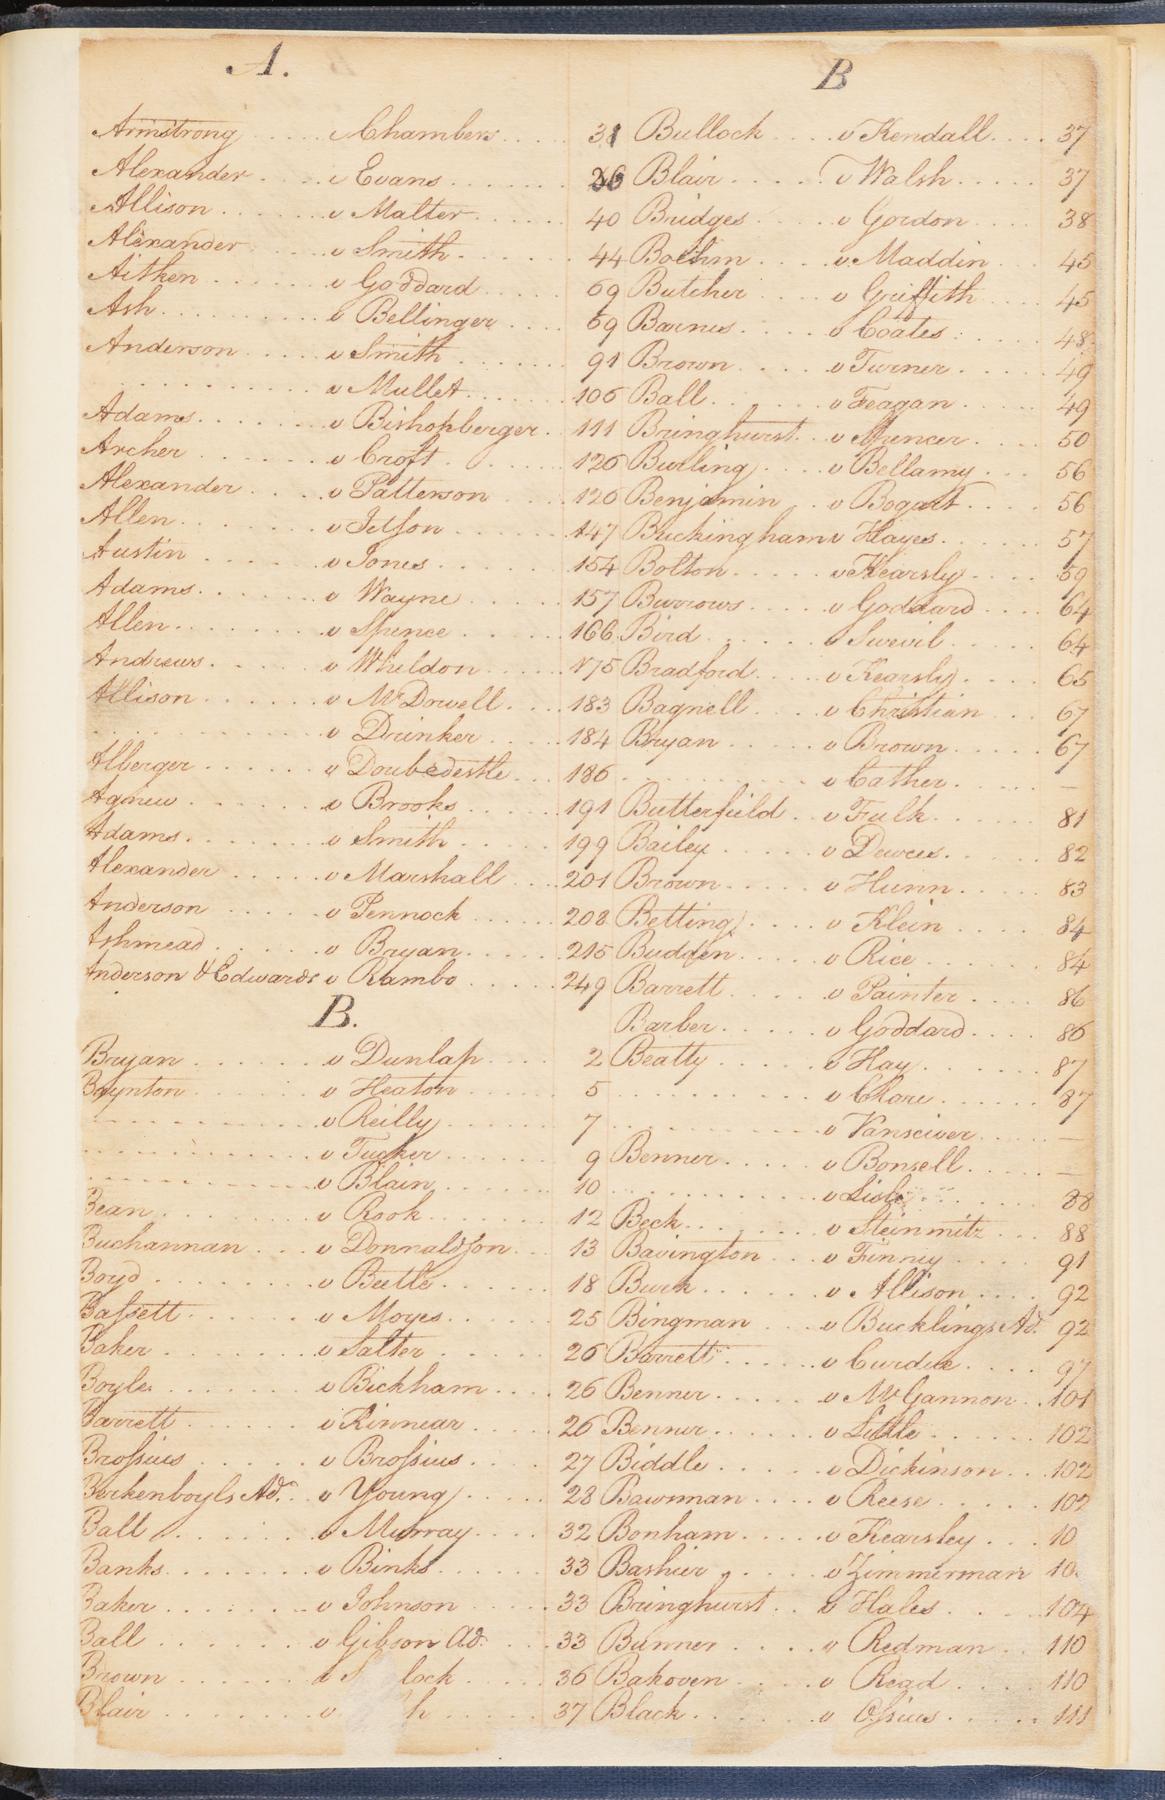 A.
Armstrong v Chambers 31
Alexander v Evans 26
Allison v Malter 40
Alexander v Smith 44
Aitken v Goddard 69
Ash v Bellinger 69
Anderson v Smith 91
v Mullet 106
Adams v Bishopberger 111
Archer v Croft 126
Alexander v Patterson 126
Allen v 147
Austin v Jones 154
Adams v Wayne 157
Allen v Spence 166
Andrews v Wheldon 175
Allison v McDowell 183
v Drinker 184
Alberger v Doubedestle 186
Agnew v Brooks 191
Adams v Smith 199
Alexander v Marshall 201
Anderson v Pennock 208
Ashmead v Bryan 215
Anderson & Edwards v Rambo 249
B.
Bryan v Dunlap 2
Boynton v Heaton 5
v Reilly 7
v Tucker 9
v Blain 10
Bean v Rook 12
Buchannan v Donnaldson 13
Boyd v Beetle 18
Bassett v Moyes 25
Baker v Salter 26
Boyle v Bickham 26
Barrett v Kinnear 26
Brossius v Brossius 27
Bockenboyls Ad. v Young 28
Balt v Murray 32
Banks v Binks 33
Baker v Johnson 33
Ball v Gibson Ad. 33
Brown v S lock 36
Blair v h 37
B
Bullock v Kendall 37
Blair v Walsh 37
Bridges v Gordon 38
Boehm v Maddin 45
Butcher v Griffith 45
Barnes v Coates 48
Brown v Turner 49
Ball v Feagan 49
Bringhurst v Spencer 50
Burling v Bellamy 56
Benjamin v Bogart 56
Buckingham v Hayes 57
Bolton v Kearsly 59
Burrows v Goddard 64
Bird v Swevil 64
Bradford v Kearsly 65
Bagnell v Christian 67
Bryan v Brown 67
v Cather —
Butterfield v Fulk 81
Bailey v Dewees 82
Brown v Hunn 83
Betting v Klein 84
Budden v Rice 84
Barrett v Painter 86
Barber v Goddard 86
Beatty v Hay 87
v Clare 87
v Vansciver —
Benner v Bonsell —
v Lisle 88
Beck v Steinmitz 88
Bavington v Finney 91
Burk v Allison 92
Bingman v Bucklings Ad. 92
Barrett v Curdie 97
Benner v McGannon 101
Benner v Little 102
Biddle v Dickinson 102
Bawnman v Reese 102
Bonham v Kearsley 10
Bashier v Zimmerman 10
Bringhurst v Hales 104
Bunner v Redman 110
Bakoven v Read 110
Black v Ossius 111